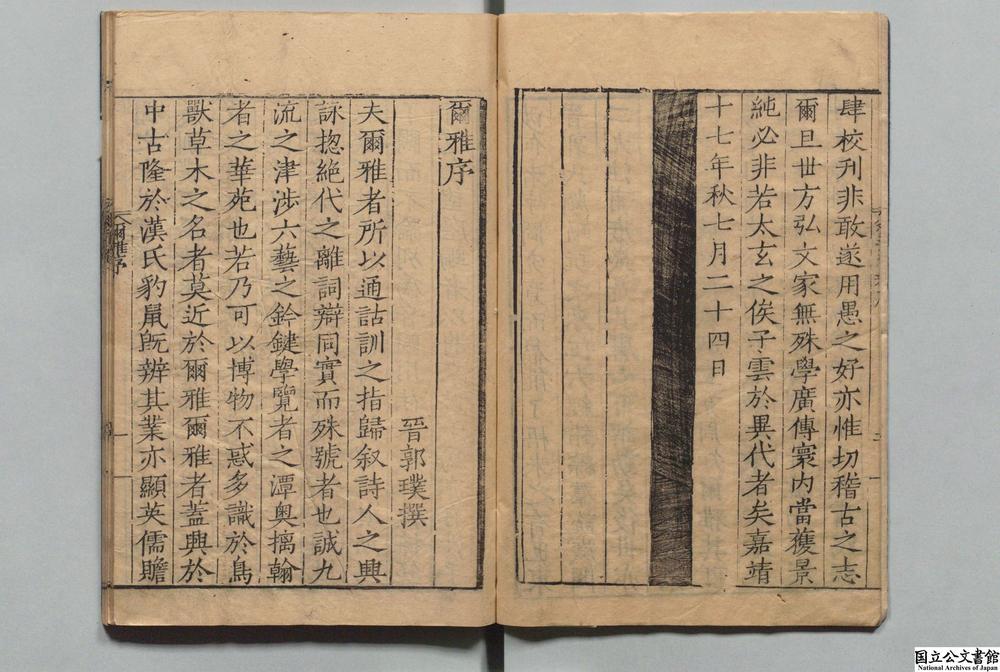 肆校刋非敢遂用愚之好亦惟切稽古之志
爾且世方弘文家無殊學廣傳寰内當獲景
純必非若太玄之俟子雲於異代者矣嘉靖
十七年秋七月二十四日
爾雅序
晉郭璞撰
夫爾雅者所以通詁訓之指歸叙詩人之興
詠揔絶代之離詞辯同實而殊號者也誠九
流之津涉六藝之鈐鍵學覽者之潭奥摛翰
者之華苑也若乃可以博物不惑多識於鳥
獸草木之名者莫近於爾雅爾雅者蓋興於
中古隆於漢氏豹鼠旣辨其業亦顯英儒贍
爾雅序
国立公文書館
National Archives of Japan